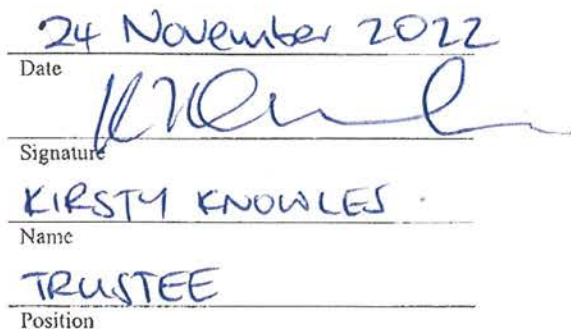 24 November 2022
Date
Signature
KIRSTY KNOWLES
Name
TRUSTEE
Position